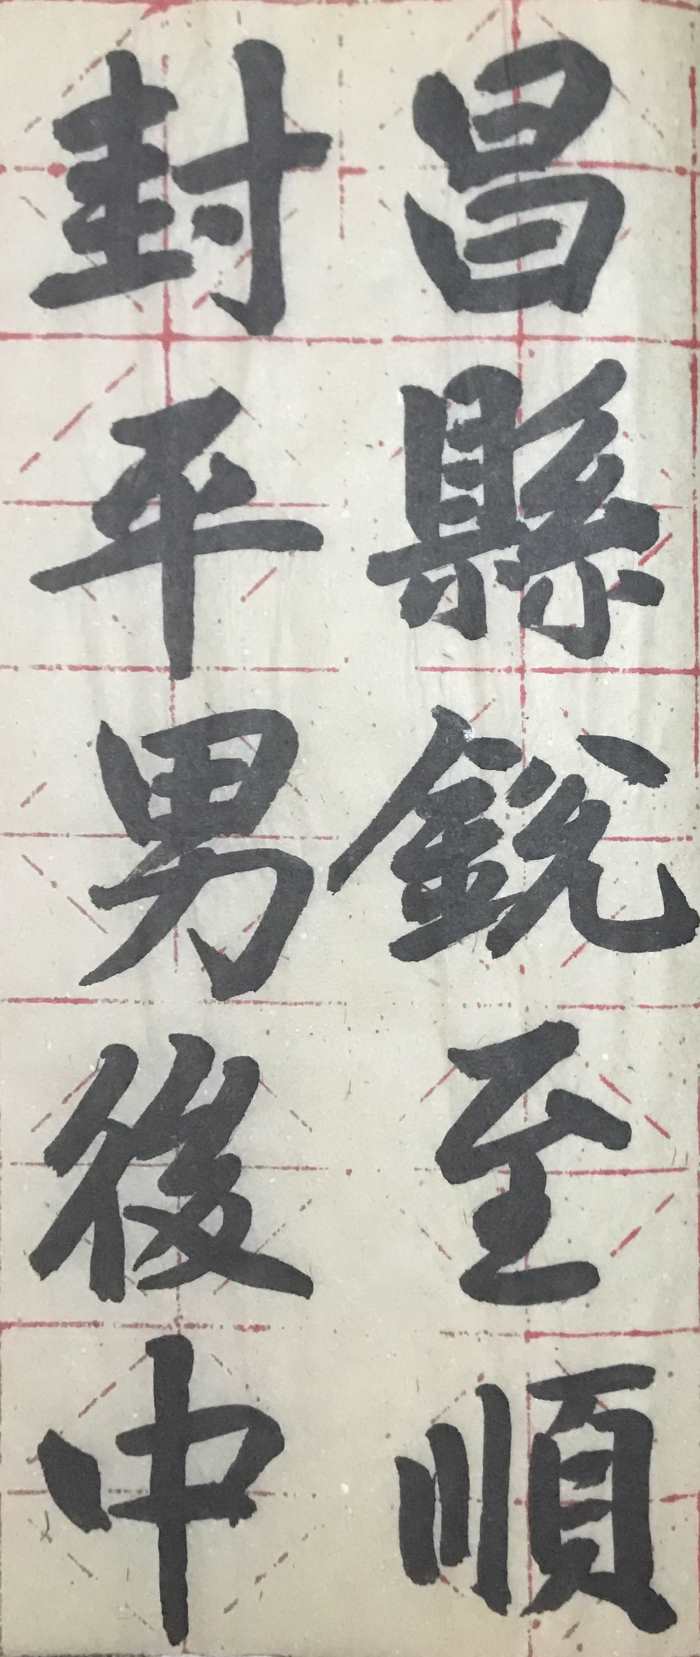 昌縣銳至順
封平男後中